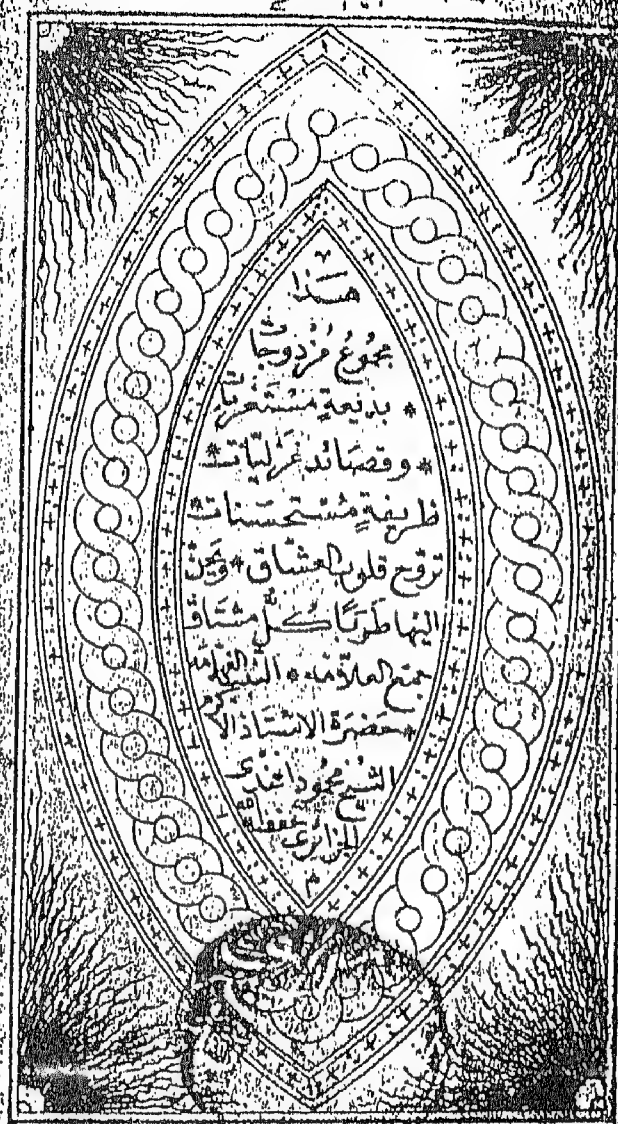 هَذَا
مجمُوعُ مُزْدَوجَات
* بديعةٍ مُسْتَعذبَات
* وقصَائد غَزَليّات *
ظريفةٍ مُسْتحسَنات *
تروّح قلوب العشّاق * ويحنّ
اليْها طَرَبًا كلّ مشتاق
جمع العلاّمه * الفهّامه
* حضرَة الاسْتاذ الاكرم
الشيْخ محمُود افندى
الجزائرى حفظه الله
م